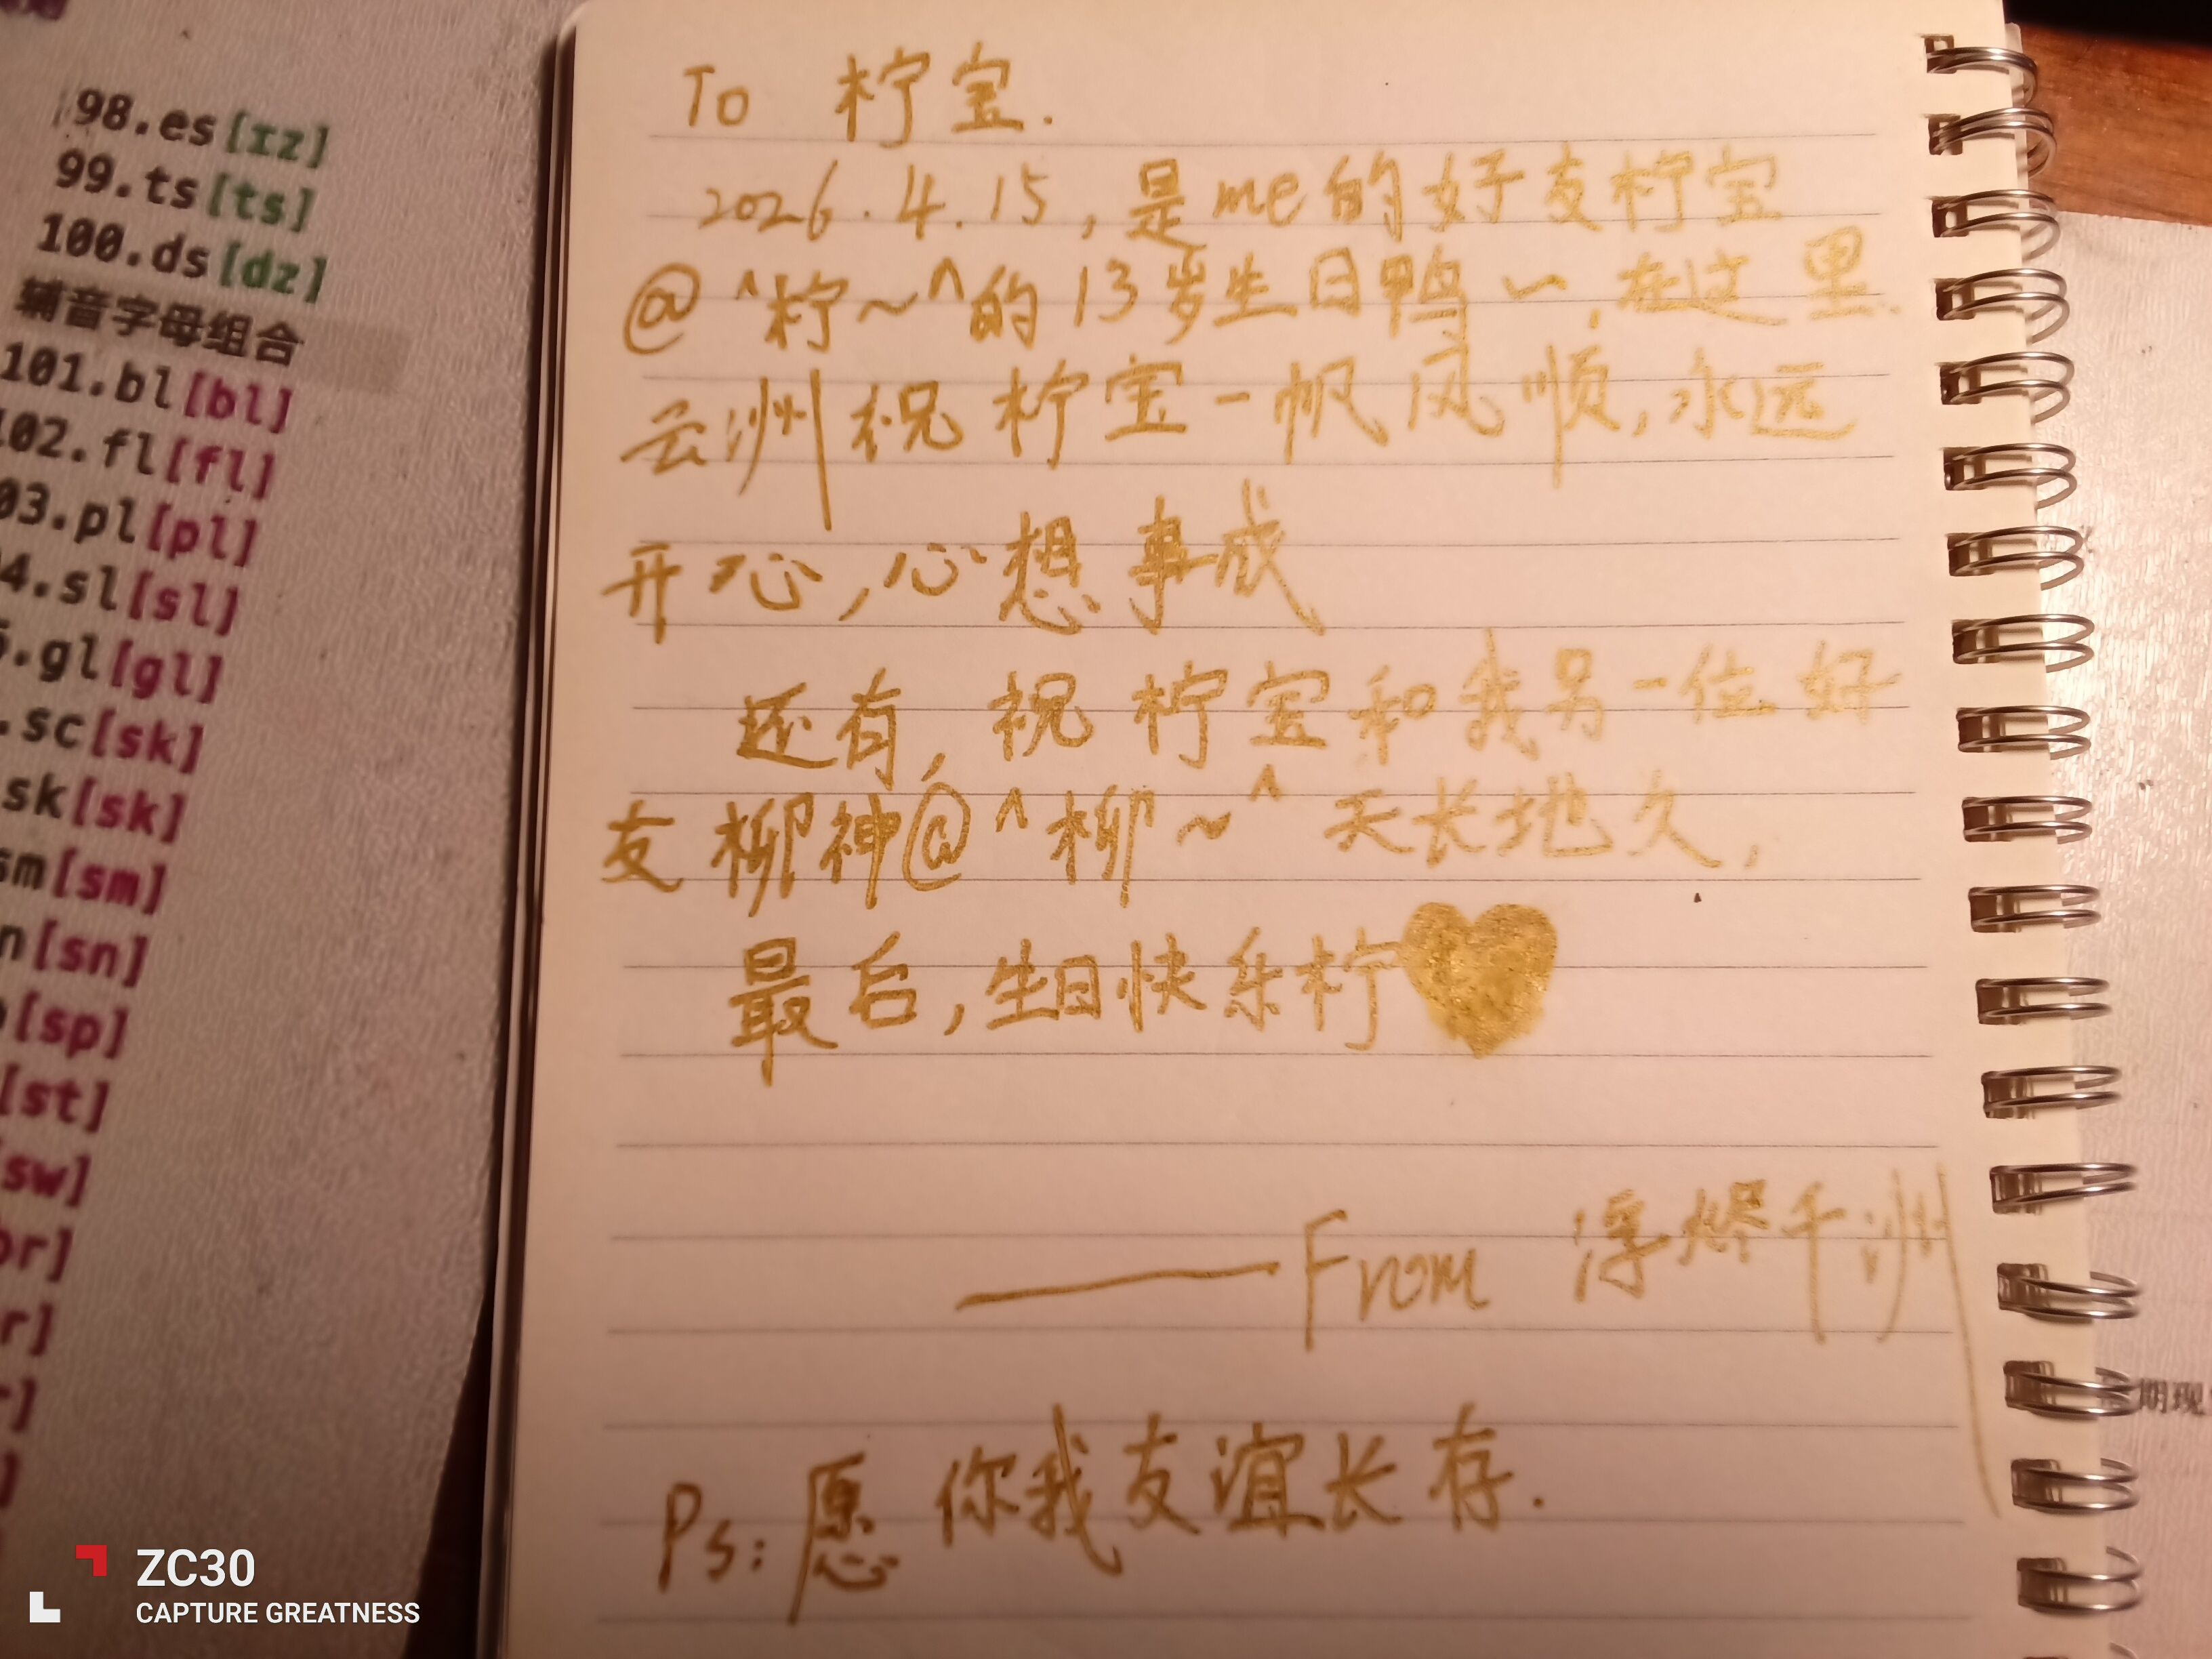 98.es[ɪz]
99.ts[ts]
100.ds[dz]
辅音字母组合
101.bl[bl]
102.fl[fl]
03.pl[pl]
4.sl[sl]
.gl[gl]
.sc[sk]
sk[sk]
sm[sm]
n[sn]
[sp]
[st]
sw]
br]
r]
To 柠宝.
2026.4.15,是me的好友柠宝
@^柠~^的13岁生日鸭~,在这里
云洲祝柠宝一帆风顺,永远
开心,心想事成
还有,祝柠宝和我另一位好
友柳神@^柳~^天长地久,
最后,生日快乐柠
——From 浮烬千洲
Ps:愿你我友谊长存.
期现
ZC30
CAPTURE GREATNESS